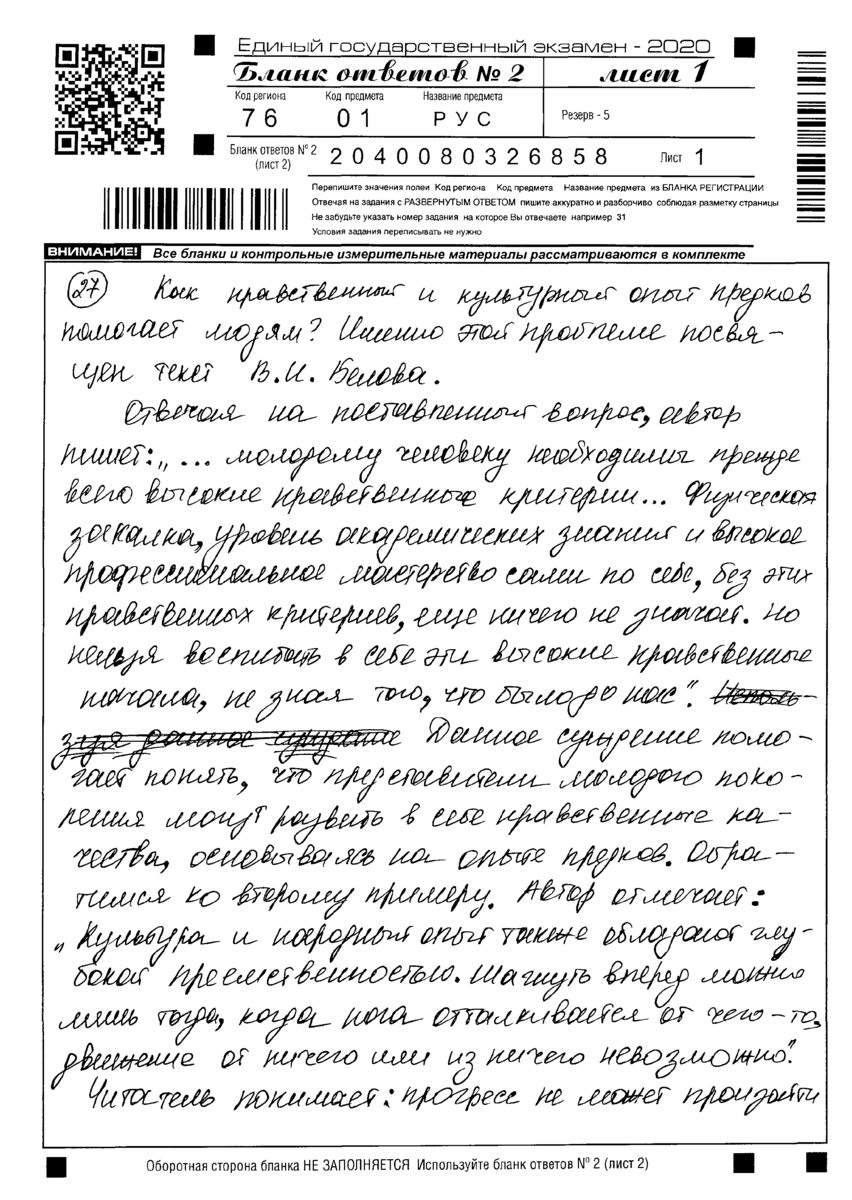 Единый государственный экзамен - 2020
Бланк ответов № 2 лист 1
Код региона Код предмета Название предмета Резерв - 5
76 01 РУС
Бланк ответов № 2 (лист 2) 2040080326858 Лист 1
Перепишите значения полей Код региона Код предмета Название предмета из БЛАНКА РЕГИСТРАЦИИ
Отвечая на задания с РАЗВЕРНУТЫМ ОТВЕТОМ пишите аккуратно и разборчиво соблюдая разметку страницы
Не забудьте указать номер задания на которое Вы отвечаете например 31
Условия задания переписывать не нужно
ВНИМАНИЕ! Все бланки и контрольные измерительные материалы рассматриваются в комплекте
27 Как нравственный и культурный опыт предков
помогает людям? Именно этой проблеме посвя-
щен текст В.И. Белова.
Отвечая на поставленный вопрос, автор
пишет: „... молодому человеку необходимы прежде
всего высокие нравственные критерии... Физическая
закалка, уровень академических знаний и высокое
профессиональное мастерство сами по себе, без этих
нравственных критериев, еще ничего не значат. Но
нельзя воспитать в себе эти высокие нравственные
начала, не зная того, что было до нас". Исполь-
зуя данное суждение Данное суждение помо-
гает понять, что представители молодого поко-
ления могут развить в себе нравственные ка-
чества, основываясь на опыте предков. Обра-
тимся ко второму примеру. Автор отмечает:
„Культура и народный опыт также обладают глу-
бокой преемственностью. Шагнуть вперед можно
лишь тогда, когда нога отталкивается от чего-то,
движение от ничего или из ничего невозможно".
Читатель понимает: прогресс не может произойти
Оборотная сторона бланка НЕ ЗАПОЛНЯЕТСЯ Используйте бланк ответов № 2 (лист 2)